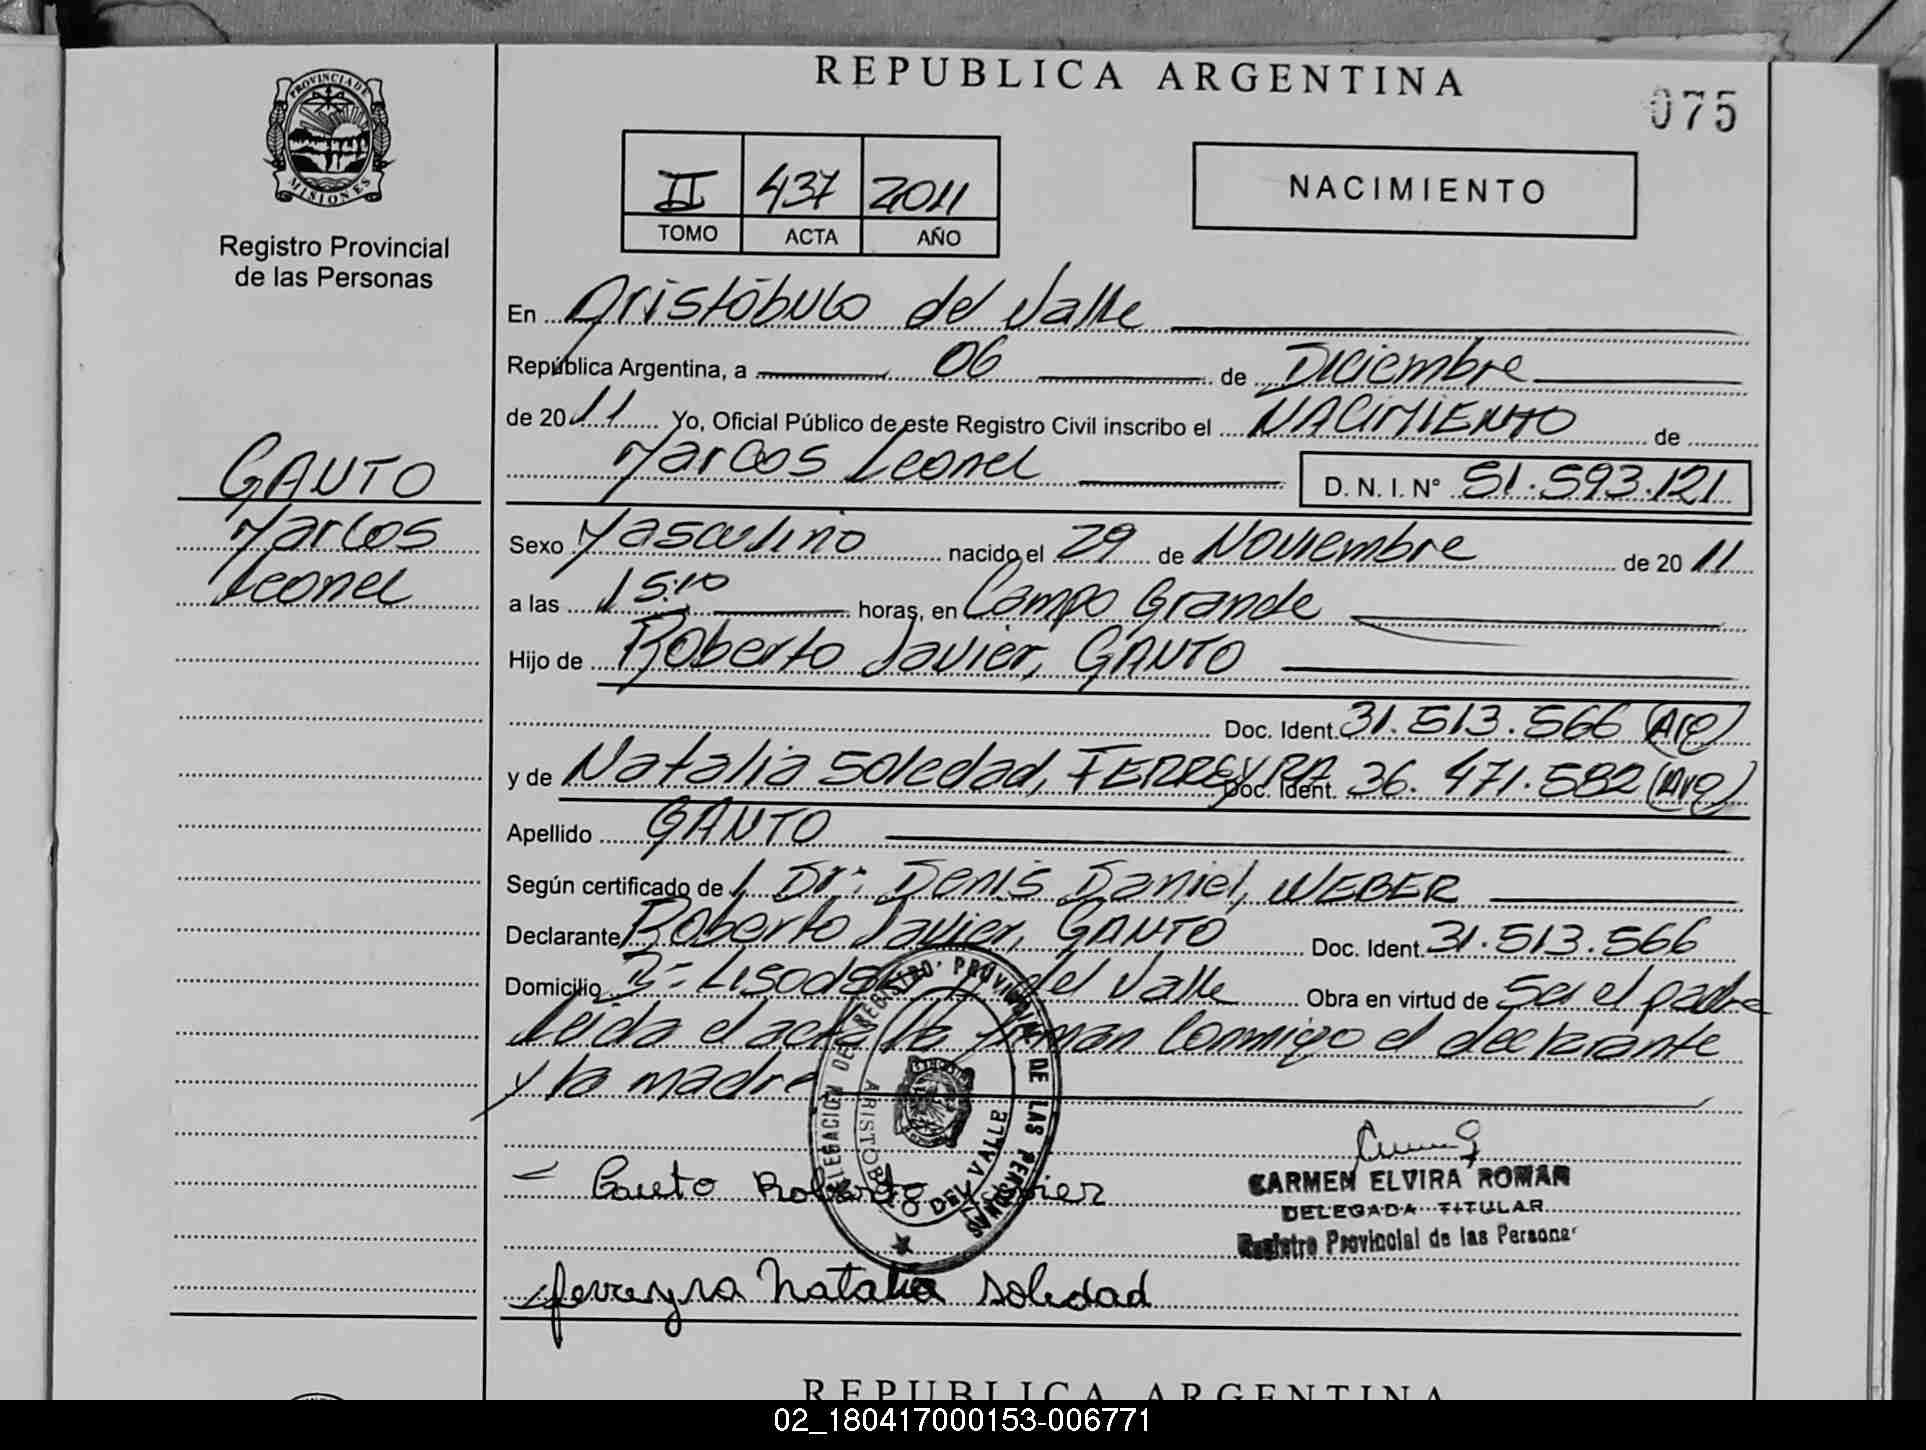 REPUBLICA ARGENTINA
075
PROVINCIA DE
MISIONES
Registro Provincial
de las Personas
II 437 2011
TOMO ACTA AÑO
NACIMIENTO
En Aristóbulo del Valle
República Argentina, a 06 de Diciembre
de 2011 Yo, Oficial Público de este Registro Civil inscribo el NACIMIENTO de
Marcos Leonel D. N. I. N° 51.593.121
GAUTO
Marcos
Leonel
Sexo Masculino nacido el 29 de Noviembre de 2011
a las 15:10 horas, en Campo Grande
Hijo de Roberto Javier, GAUTO
Doc. Ident. 31.513.566 (Arg)
y de Natalia Soledad, FERREYRA Doc. Ident. 36.471.582 (Arg)
Apellido GAUTO
Según certificado de Dr: Denis Daniel, WEBER
Declarante Roberto Javier, GAUTO Doc. Ident. 31.513.566
Domicilio B= del Valle Obra en virtud de Ser el padre
Leída el acta la firman conmigo el declarante
y la madre
DELEGACION DEL REGISTRO PROVINCIAL DE LAS PERSONAS
ARISTOBULO DEL VALLE
Gauto Roberto Javier
CARMEN ELVIRA ROMAN
DELEGADA TITULAR
Registro Provincial de las Personas
Ferreyra Natalia Soledad
REPUBLICA ARGENTINA
02_180417000153-006771